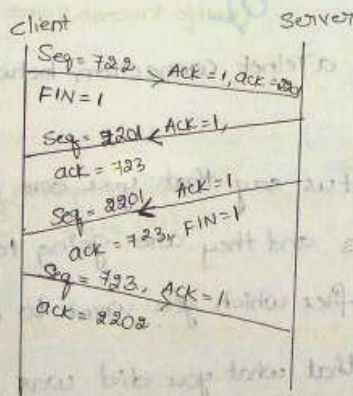 Client
Server
Seq = 722
Ack = 1, ack = 2201
FIN = 1
Seq = 2201
Ack = 1,
ack = 723
Seq = 2201
Ack = 1
ack = 723, FIN = 1
Seq = 723, Ack = 1
ack = 2202